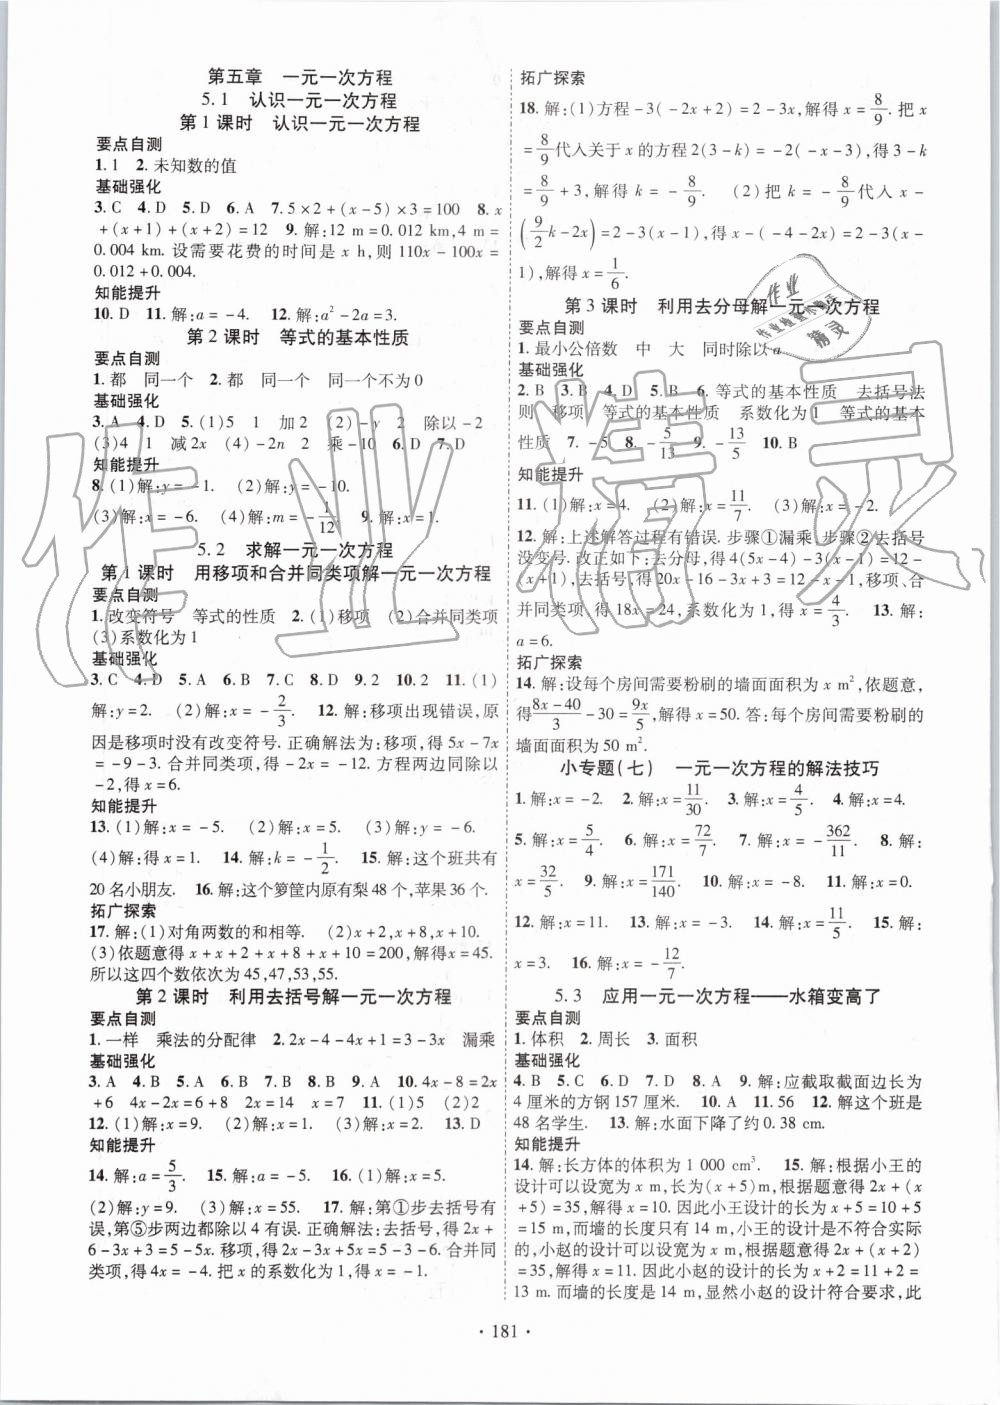 第五章 一元一次方程
5.1 认识一元一次方程
第1课时 认识一元一次方程
要点自测
1.1 2.未知数的值
基础强化
3.C 4.D 5.D 6.A 7.5×2+(x-5)×3=100 8.x
+(x+1)+(x+2)=12 9.解:12 m=0.012 km,4 m=
0.004 km.设需要花费的时间是x h,则110x-100x=
0.012+0.004.
知能提升
10.D 11.解:a=-4. 12.解:a²-2a=3.
第2课时 等式的基本性质
要点自测
1.都 同一个 2.都 同一个 同一个不为0
基础强化
3.A 4.D 5.(1)5 1 加2 (2)-y 2 除以-2
(3)4 1 减2x (4)-2n 2 乘-10 6.D 7.D
知能提升
8.(1)解:y=-1. (2)解:y=-10.
(3)解:x=-6. (4)解:m=-1/12. 9.解:x=1.
5.2 求解一元一次方程
第1课时 用移项和合并同类项解一元一次方程
要点自测
1.改变符号 等式的性质 2.(1)移项 (2)合并同类项
(3)系数化为1
基础强化
3.C 4.D 5.A 6.B 7.C 8.D 9.2 10.2 11.(1)
解:y=2. (2)解:x=-2/3. 12.解:移项出现错误,原
因是移项时没有改变符号.正确解法为:移项,得5x-7x
=-9-3.合并同类项,得-2x=-12.方程两边同除以
-2,得x=6.
知能提升
13.(1)解:x=-5. (2)解:x=5. (3)解:y=-6.
(4)解:得x=1. 14.解:k=-1/2. 15.解:这个班共有
20名小朋友. 16.解:这个箩筐内原有梨48个,苹果36个.
拓广探索
17.解:(1)对角两数的和相等. (2)x+2,x+8,x+10.
(3)依题意得x+x+2+x+8+x+10=200,解得x=45.
所以这四个数依次为45,47,53,55.
第2课时 利用去括号解一元一次方程
要点自测
1.一样 乘法的分配律 2.2x-4-4x+1=3-3x 漏乘
基础强化
3.A 4.B 5.A 6.B 7.A 8.B 9.A 10.4x-8=2x
+6 4x-2x=6+8 2x=14 x=7 11.(1)5 (2)2
12.(1)解:x=9. (2)解:x=1. (3)解:x=6. 13.D
知能提升
14.解:a=5/3. 15.解:a=-5. 16.(1)解:x=5.
(2)解:y=9. (3)解:x=55. 17.解:第①步去括号有
误,第⑤步两边都除以4有误.正确解法:去括号,得2x+
6-3x+3=5-5x.移项,得2x-3x+5x=5-6-3.合并同
类项,得4x=-4.把x的系数化为1,得x=-1.
拓广探索
18.解:(1)方程-3(-2x+2)=2-3x,解得x=8/9.把x
=8/9代入关于x的方程2(3-k)=-2(-x-3),得3-k
=8/9+3,解得k=-8/9. (2)把k=-8/9代入x-
(9/2k-2x)=2-3(x-1),得x-(-4-2x)=2-3(x-
1),解得x=1/6.
第3课时 利用去分母解一元一次方程
要点自测
1.最小公倍数 中 大 同时除以a
基础强化
2.B 3.B 4.D 5.B 6.等式的基本性质 去括号法
则 移项 等式的基本性质 系数化为1 等式的基本
性质 7.-5 8.-5/13 9.-13/5 10.B
知能提升
11.(1)解:x=4. (2)解:x=11/7. (3)解:x=-2.
12.解:上述解答过程有错误.步骤①漏乘,步骤②去括号
没变号.改正如下:去分母,得4(5x-4)-3(x+1)=12-
(x+1),去括号,得20x-16-3x+3=12-x+1,移项、合
并同类项,得18x=24,系数化为1,得x=4/3. 13.解:
a=6.
拓广探索
14.解:设每个房间需要粉刷的墙面面积为x m²,依题意,
得(8x-40)/3-30=9x/5,解得x=50.答:每个房间需要粉刷的
墙面面积为50 m².
小专题(七) 一元一次方程的解法技巧
1.解:x=-2. 2.解:x=11/30. 3.解:x=4/5. 4.解:x=4.
5.解:x=5/4. 6.解:x=72/7. 7.解:x=-362/11. 8.解:
x=32/5. 9.解:x=171/140. 10.解:x=-8. 11.解:x=0.
12.解:x=11. 13.解:x=-3. 14.解:x=11/5. 15.解:
x=3. 16.解:x=-12/7.
5.3 应用一元一次方程——水箱变高了
要点自测
1.体积 2.周长 3.面积
基础强化
4.B 5.C 6.D 7.B 8.A 9.解:应截取截面边长为
4厘米的方钢157厘米. 10.A 11.56 12.解这个班是
48名学生. 13.解:水面下降了约0.38 cm.
知能提升
14.解:长方体的体积为1 000 cm³. 15.解:根据小王的
设计可以设宽为x m,长为(x+5)m,根据题意得2x+(x
+5)=35,解得x=10.因此小王设计的长为x+5=10+5
=15 m,而墙的长度只有14 m,小王的设计是不符合实际
的,小赵的设计可以设宽为x m,根据题意得2x+(x+2)
=35,解得x=11.因此小赵的设计的长为x+2=11+2=
13 m.而墙的长度是14 m,显然小赵的设计符合要求,此
·181·
作业精灵
作业
精灵